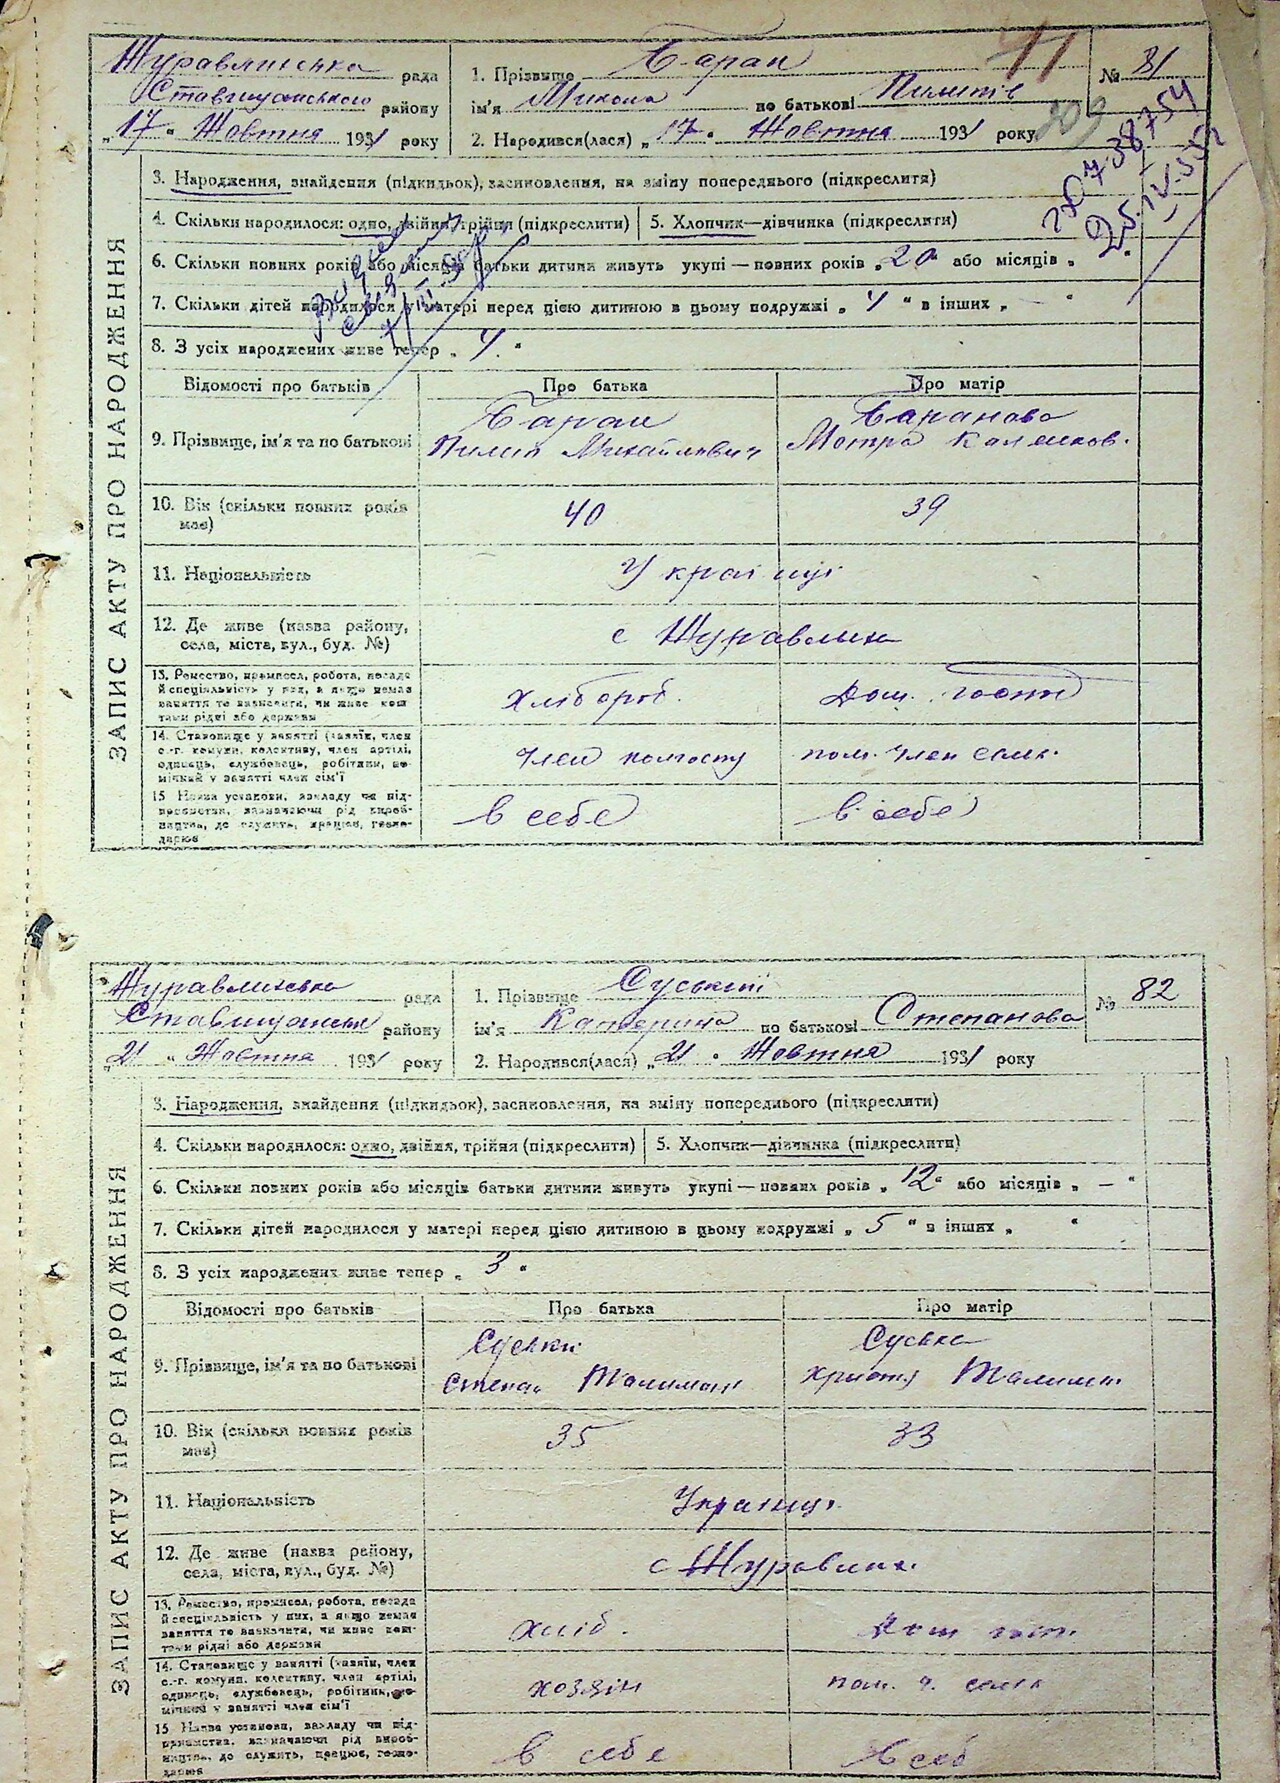 ЗАПИС АКТУ ПРО НАРОДЖЕННЯ
Журавлиська рада
Ставищанського району
„17“ Жовтня 1931 року
1. Прізвище Баран
ім'я Микола по батькові Пилипів
2. Народився(лася) „17“ Жовтня 1931 року
№ 81
41
209
738754
25.IV.
3. Народження, знайдення (підкидьок), засиновлення, на зміну попереднього (підкреслити)
4. Скільки народилося: одно, двійня, трійня (підкреслити)
5. Хлопчик—дівчинка (підкреслити)
6. Скільки повних років або місяців батьки дитини живуть укупі — повних років „20“ або місяців „
7. Скільки дітей народилося у матері перед цією дитиною в цьому подружжі „4“ в інших „—“
8. З усіх народжених живе тепер „4“
Відомості про батьків Про батька Про матір
9. Прізвище, ім'я та по батькові
Баран
Пилип Михайлович
Баранова
Мотра
10. Вік (скільки повних років має)
40 39
11. Національність
Українці
12. Де живе (назва району,
села, міста, вул., буд. №)
с Журавлиха
13. Ремество, промисел, робота, посада
й спеціяльність у них, а якщо немає
заняття то визначити, чи живе кош-
тами рідні або держави
хлібороб. Дом. госп
14. Становище у занятті (хазяїн, член
с.-г. комуни, колективу, член артілі,
одинець, службовець, робітник, по-
мічний у занятті член сім'ї
член колгоспу пом. член семк.
15 Назва установи, закладу чи під-
приємства, зазначаючи рід вироб-
ництва, де служить, працює, госпо-
дарює
в себе в себе
ЗАПИС АКТУ ПРО НАРОДЖЕННЯ
Журавлиська рада
Ставищанськ району
„21“ Жовтня 1931 року
1. Прізвище Суський
ім'я Катерина по батькові Степанова
2. Народився(лася) „21“ Жовтня 1931 року
№ 82
3. Народження, знайдення (підкидьок), засиновлення, на зміну попереднього (підкреслити)
4. Скільки народилося: одно, двійня, трійня (підкреслити)
5. Хлопчик—дівчинка (підкреслити)
6. Скільки повних років або місяців батьки дитини живуть укупі — повних років „12“ або місяців „—“
7. Скільки дітей народилося у матері перед цією дитиною в цьому подружжі „5“ в інших „ “
8. З усіх народжених живе тепер „3“
Відомості про батьків Про батька Про матір
9. Прізвище, ім'я та по батькові
Степан
Суська
Христя
10. Вік (скільки повних років має)
35 33
11. Національність
Україн
12. Де живе (назва району,
села, міста, вул., буд. №)
с Журавлиха.
13. Ремество, промисел, робота, посада
й спеціяльність у них, а якщо немає
заняття то визначити, чи живе кош-
тами рідні або держави
хліб. Дом госп.
14. Становище у занятті (хазяїн, член
с.-г. комуни, колективу, член артілі,
одинець, службовець, робітник, по-
мічний у занятті член сім'ї
хозяїн пом. ч. семк
15. Назва установи, закладу чи під-
приємства, зазначаючи рід вироб-
ництва, де служить, працює, госпо-
дарює
в себе в себ